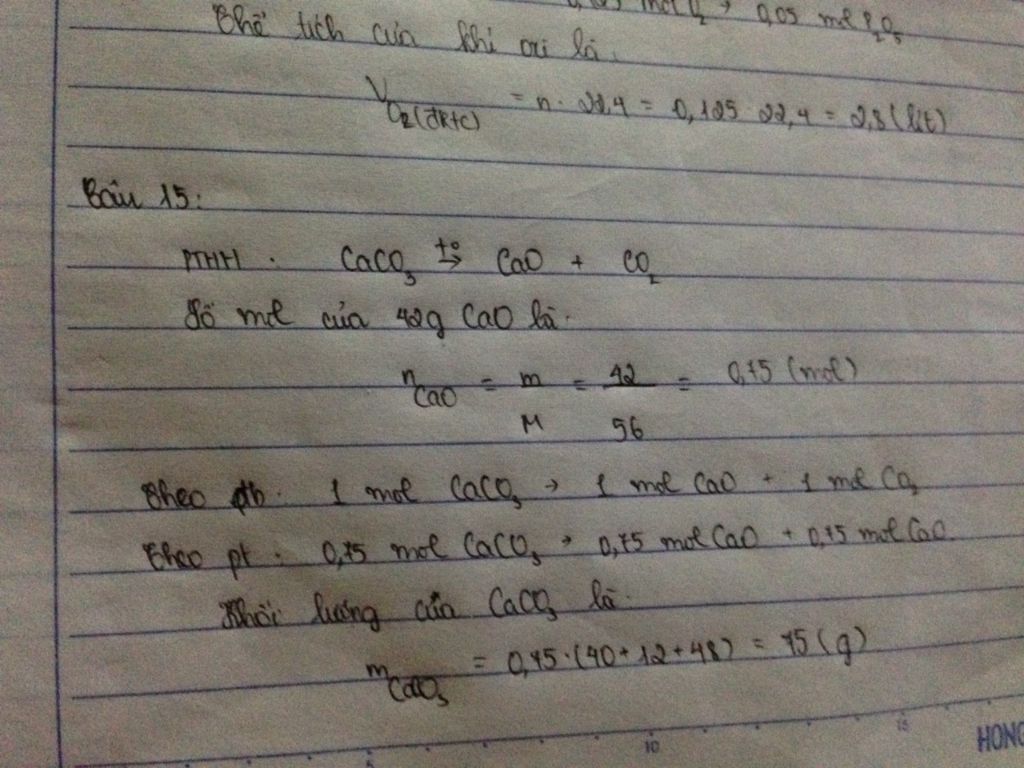 mol O₂ → 0,05 mol P₂O₅
Thể tích của khí oxi là.
V O₂(đktc) = n . 22,4 = 0,125 . 22,4 = 2,8 (lít)
Câu 15:
PTHH . CaCO₃ t°→ CaO + CO₂
Số mol của 42g CaO là.
n CaO = m/M = 42/56 = 0,75 (mol)
Theo đb . 1 mol CaCO₃ → 1 mol CaO + 1 mol CO₂
Theo pt : 0,75 mol CaCO₃ → 0,75 mol CaO + 0,75 mol CaO.
Khối lượng của CaCO₃ là.
m CaCO₃ = 0,75.(40+12+48) = 75 (g)
5 10 15
HONG